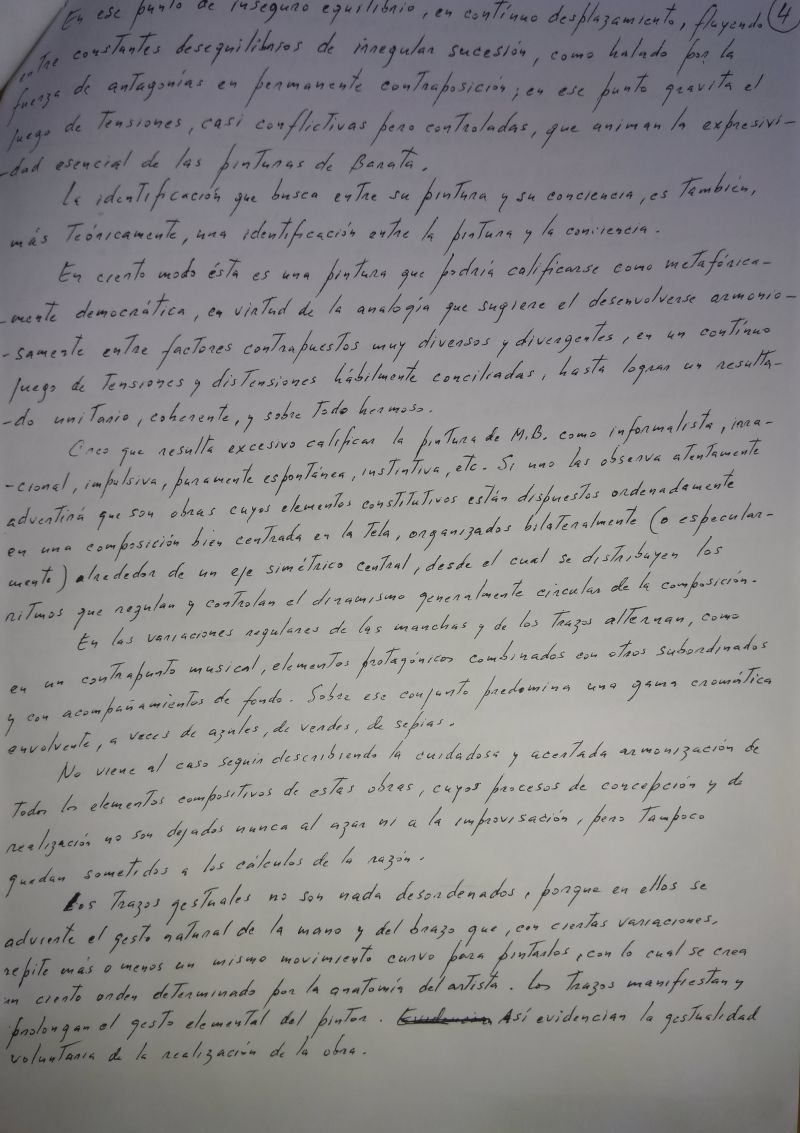 4
En ese punto de inseguro equilibrio, en contínuo desplazamiento, fluyendo
entre constantes desequilibrios de irregular sucesión, como halado por la
fuerza de antagonías en permanente contraposición; en ese punto gravita el
juego de tensiones, casi conflictivas pero controladas, que animan la expresivi-
-dad esencial de las pinturas de Barata.
La identificación que busca entre su pintura y su conciencia, es también,
más teóricamente, una identificación entre la pintura y la conciencia.
En cierto modo ésta es una pintura que podría calificarse como metafórica-
-mente democrática, en virtud de la analogía que sugiere el desenvolverse armonio-
-samente entre factores contrapuestos muy diversos y divergentes, en un contínuo
juego de tensiones y distensiones hábilmente conciliadas, hasta lograr un resulta-
-do unitario, coherente, y sobre todo hermoso.
Creo que resulta excesivo calificar la pintura de M.B. como informalista, irra-
-cional, impulsiva, puramente espontánea, instintiva, etc. Si uno las observa atentamente
advertirá que son obras cuyos elementos constitutivos están dispuestos ordenadamente
en una composición bien centrada en la tela, organizados bilateralmente (o especular-
mente) alrededor de un eje simétrico central, desde el cual se distribuyen los
ritmos que regulan y controlan el dinamismo generalmente circular de la composición.
En las variaciones regulares de las manchas y de los trazos alternan, como
en un contrapunto musical, elementos protagónicos combinados con otros subordinados
y con acompañamientos de fondo. Sobre ese conjunto predomina una gama cromática
envolvente, a veces de azules, de verdes, de sepias.
No viene al caso seguir describiendo la cuidadosa y acertada armonización de
todos los elementos compositivos de estas obras, cuyos procesos de concepción y de
realización no son dejados nunca al azar ni a la improvisación, pero tampoco
quedan sometidos a los cálculos de la razón.
Los trazos gestuales no son nada desordenados, porque en ellos se
advierte el gesto natural de la mano y del brazo que, con ciertas variaciones,
repite más o menos un mismo movimiento curvo para pintarlos, con lo cual se crea
un cierto orden determinado por la anatomía del artista. Los trazos manifiestan y
prolongan el gesto elemental del pintor. Evidencian Así evidencian la gestualidad
voluntaria de la realización de la obra.